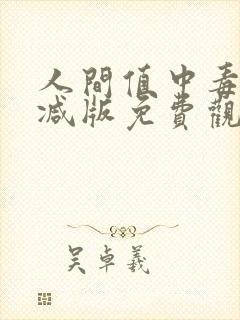 人間值中毒
減版免費觀
吴卓羲